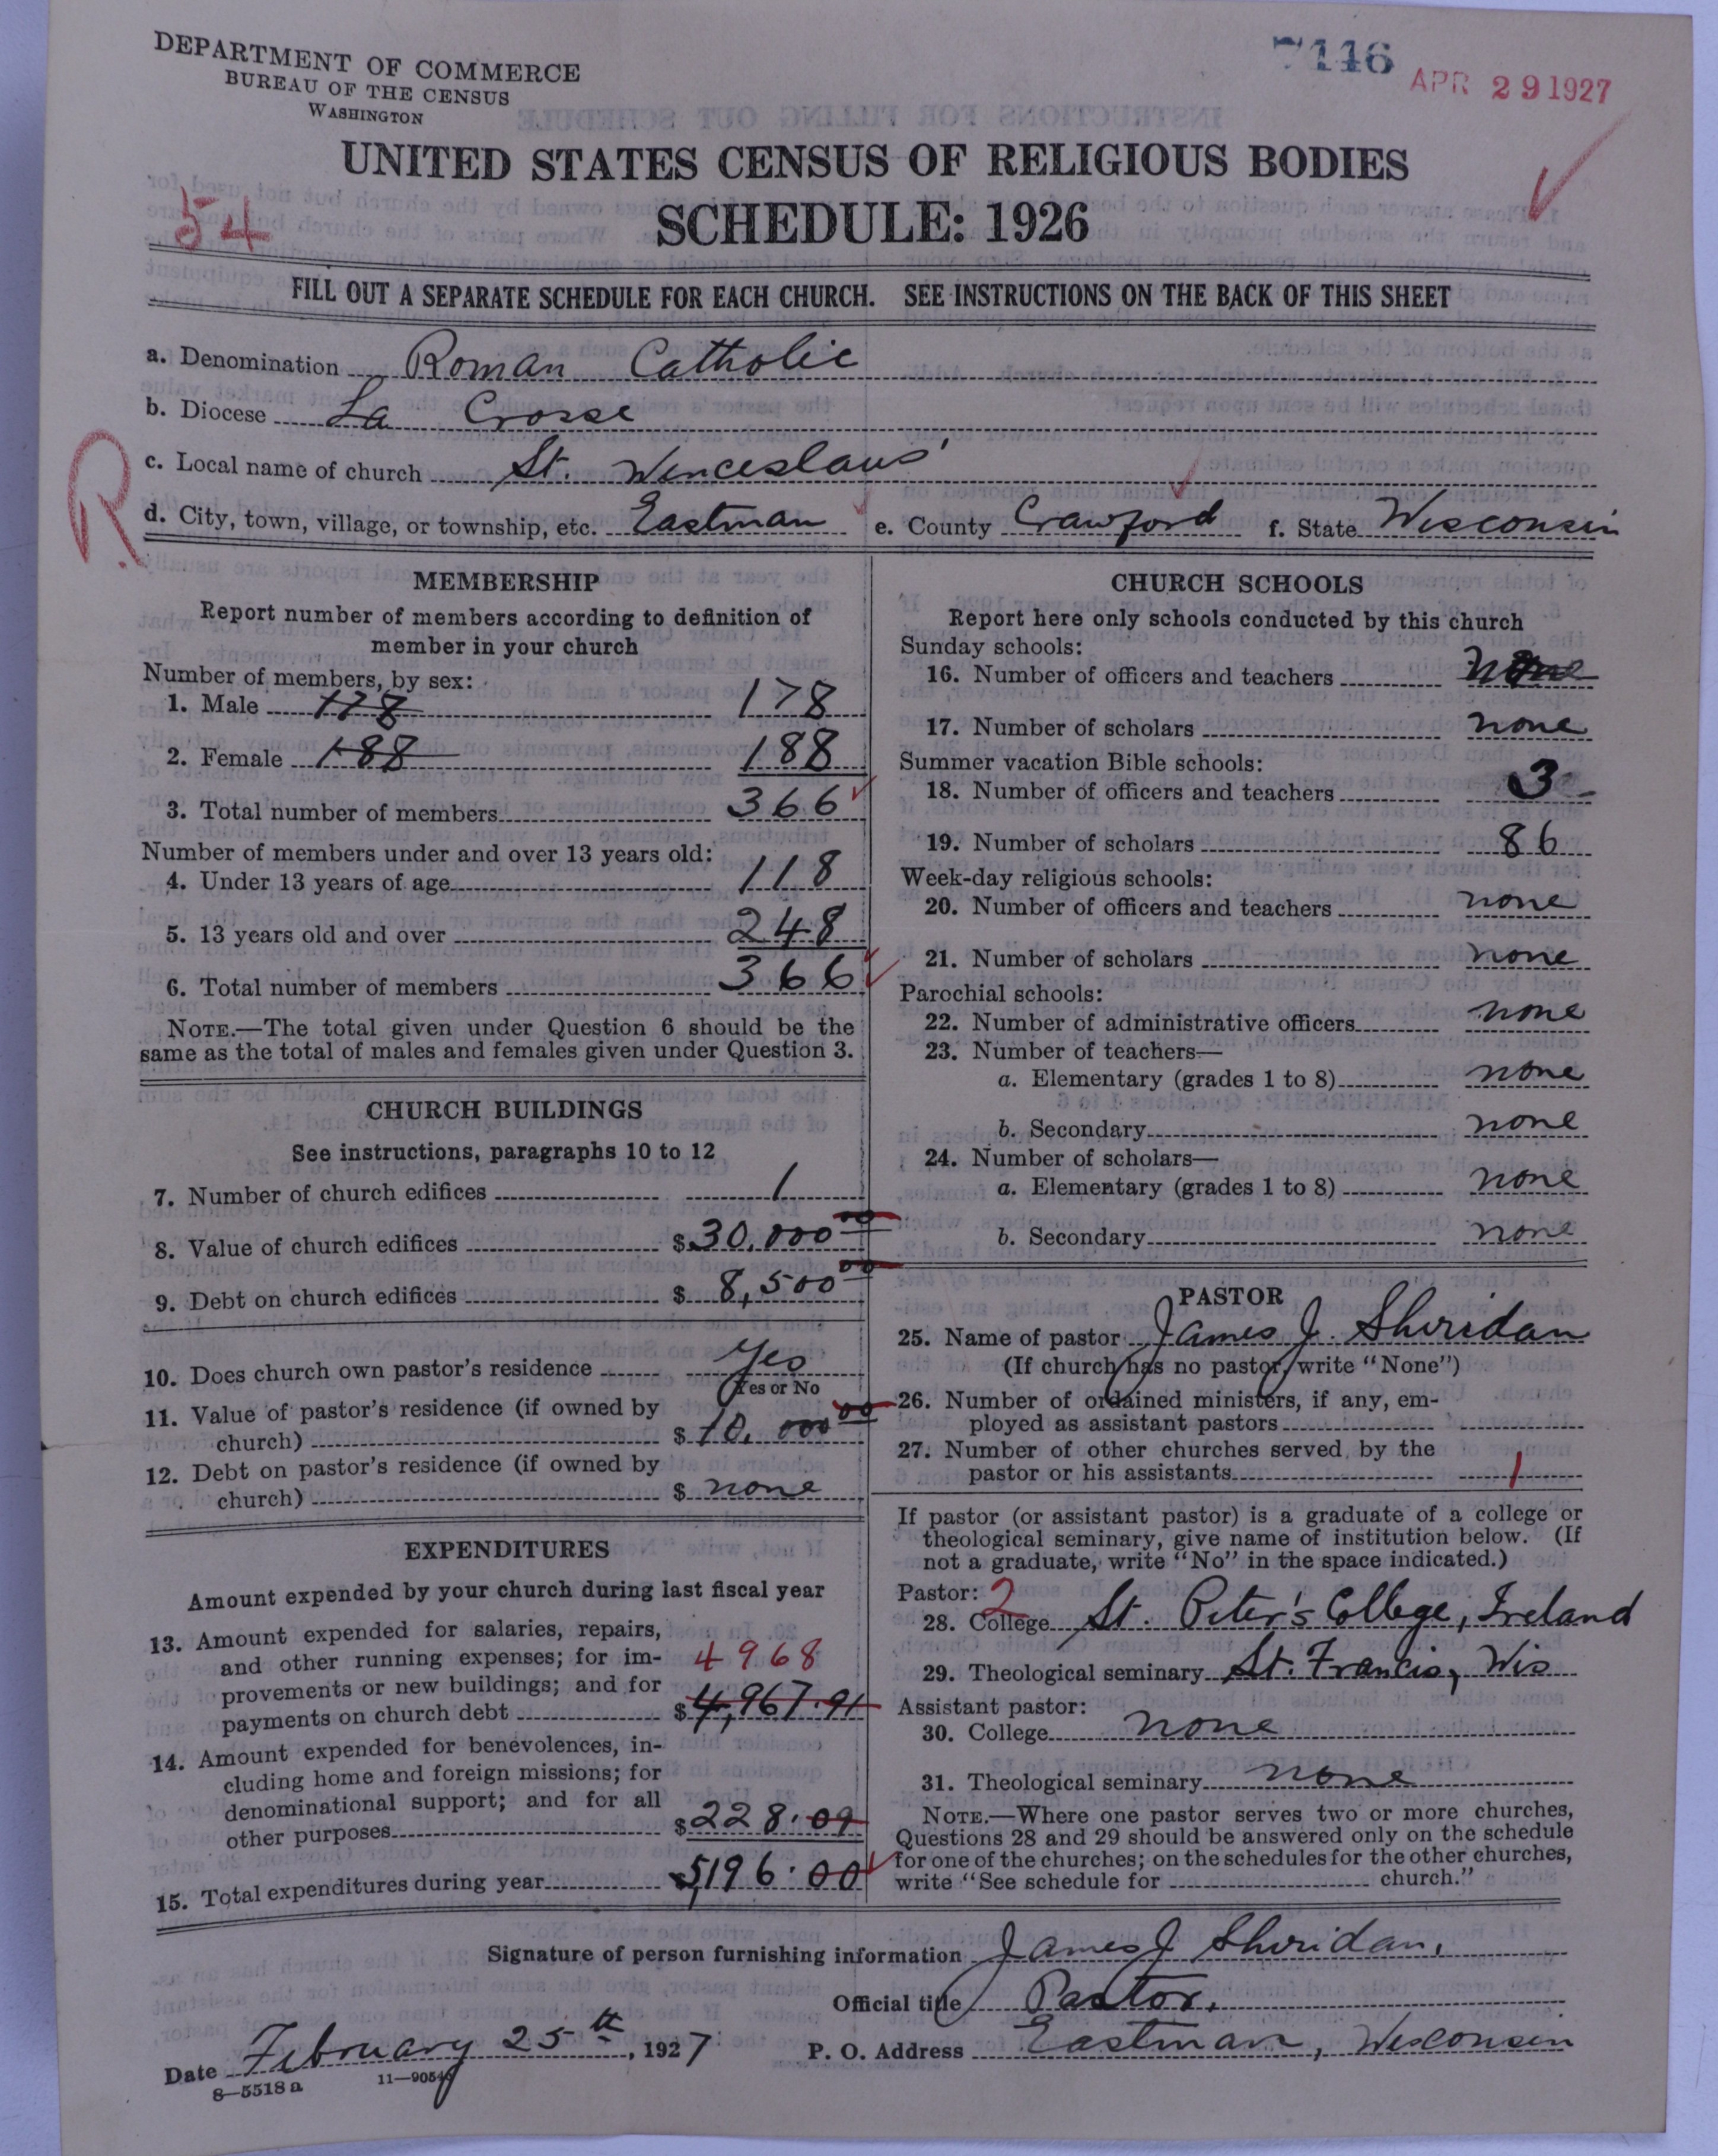 DEPARTMENT OF COMMERCE
BUREAU OF THE CENSUS
WASHINGTON
7146 APR 29 1927
UNITED STATES CENSUS OF RELIGIOUS BODIES
54
SCHEDULE: 1926
FILL OUT A SEPARATE SCHEDULE FOR EACH CHURCH. SEE INSTRUCTIONS ON THE BACK OF THIS SHEET
a. Denomination Roman Catholic
b. Diocese La Crosse
R.
c. Local name of church St. Wenceslaus'
d. City, town, village, or township, etc. Eastman e. County Crawford f. State Wisconsin
MEMBERSHIP
Report number of members according to definition of
member in your church
Number of members, by sex:
1. Male 178 178
2. Female 188 188
3. Total number of members 366
Number of members under and over 13 years old:
4. Under 13 years of age 118
5. 13 years old and over 248
6. Total number of members 366
NOTE.—The total given under Question 6 should be the
same as the total of males and females given under Question 3.
CHURCH BUILDINGS
See instructions, paragraphs 10 to 12
7. Number of church edifices 1
8. Value of church edifices $30,000 00
9. Debt on church edifices $ 8,500 00
10. Does church own pastor's residence Yes
Yes or No
11. Value of pastor's residence (if owned by
church) $ 10,000 00
12. Debt on pastor's residence (if owned by
church) $ none
EXPENDITURES
Amount expended by your church during last fiscal year
13. Amount expended for salaries, repairs,
and other running expenses; for im-
provements or new buildings; and for
payments on church debt 4968 $4,967.91
14. Amount expended for benevolences, in-
cluding home and foreign missions; for
denominational support; and for all
other purposes $228.09
15. Total expenditures during year $5,196.00
CHURCH SCHOOLS
Report here only schools conducted by this church
Sunday schools:
16. Number of officers and teachers none
17. Number of scholars none
Summer vacation Bible schools:
18. Number of officers and teachers 3
19. Number of scholars 86
Week-day religious schools:
20. Number of officers and teachers none
21. Number of scholars none
Parochial schools:
22. Number of administrative officers none
23. Number of teachers—
a. Elementary (grades 1 to 8) none
b. Secondary none
24. Number of scholars—
a. Elementary (grades 1 to 8) none
b. Secondary none
PASTOR
25. Name of pastor James J. Sheridan
(If church has no pastor, write "None")
26. Number of ordained ministers, if any, em-
ployed as assistant pastors
27. Number of other churches served by the
pastor or his assistants 1
If pastor (or assistant pastor) is a graduate of a college or
theological seminary, give name of institution below. (If
not a graduate, write "No" in the space indicated.)
Pastor: 2
28. College St. Peter's College, Ireland
29. Theological seminary St. Francis, Wis
Assistant pastor:
30. College none
31. Theological seminary none
NOTE.—Where one pastor serves two or more churches,
Questions 28 and 29 should be answered only on the schedule
for one of the churches; on the schedules for the other churches,
write "See schedule for church."
Signature of person furnishing information James J Sheridan.
Official title Pastor.
Date February 25th, 1927 P. O. Address Eastman, Wisconsin
8—5518 a 11—9054